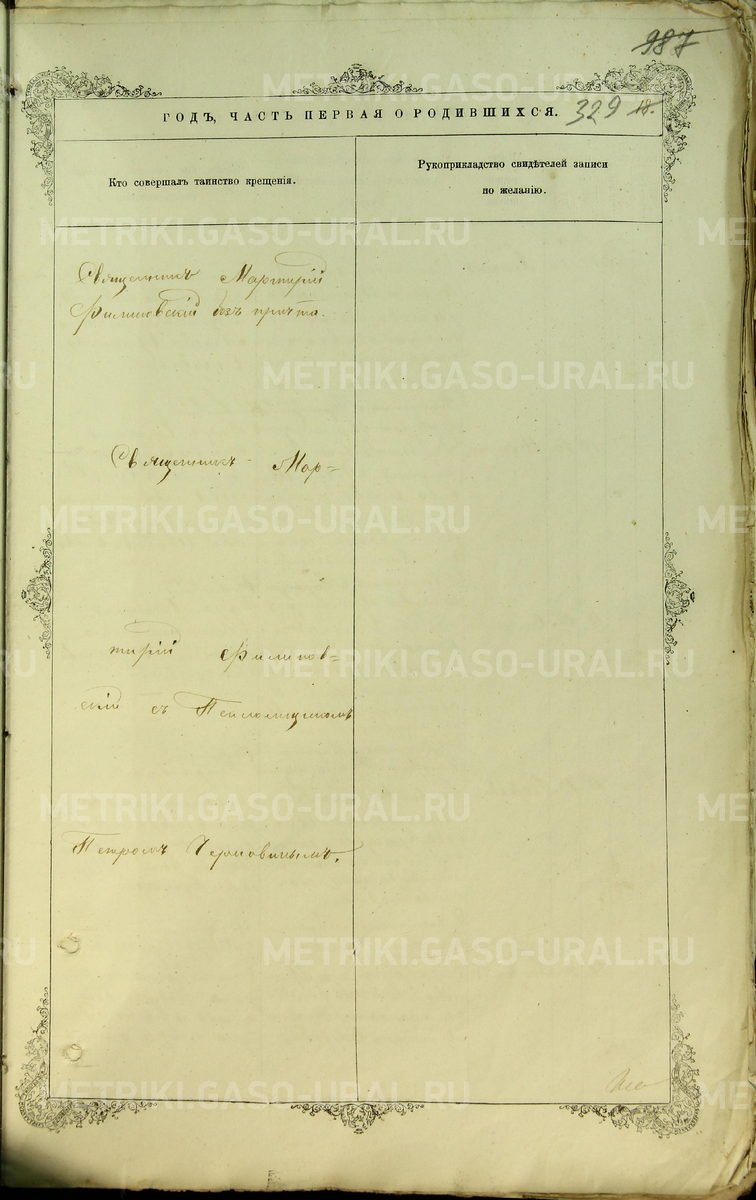 987
ГОДЪ, ЧАСТЬ ПЕРВАЯ О РОДИВШИХСЯ. 329 18.
Кто совершалъ таинство крещенія.
Рукоприкладство свидѣтелей записи
по желанію.
Священникъ Мартирій
Филиповскій безъ причта.
Священникъ Мар=
тирій Филипов=
скій съ Псаломщикомъ
Петромъ
METRIKI.GASO-URAL.RU